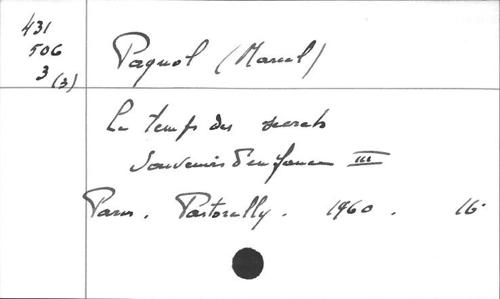 431
506
3 (3)
Pagnol (Marcel)
Le temps des secrets
Souvenirs d'enfance III
Paris. Pastorelly. 1960. 16